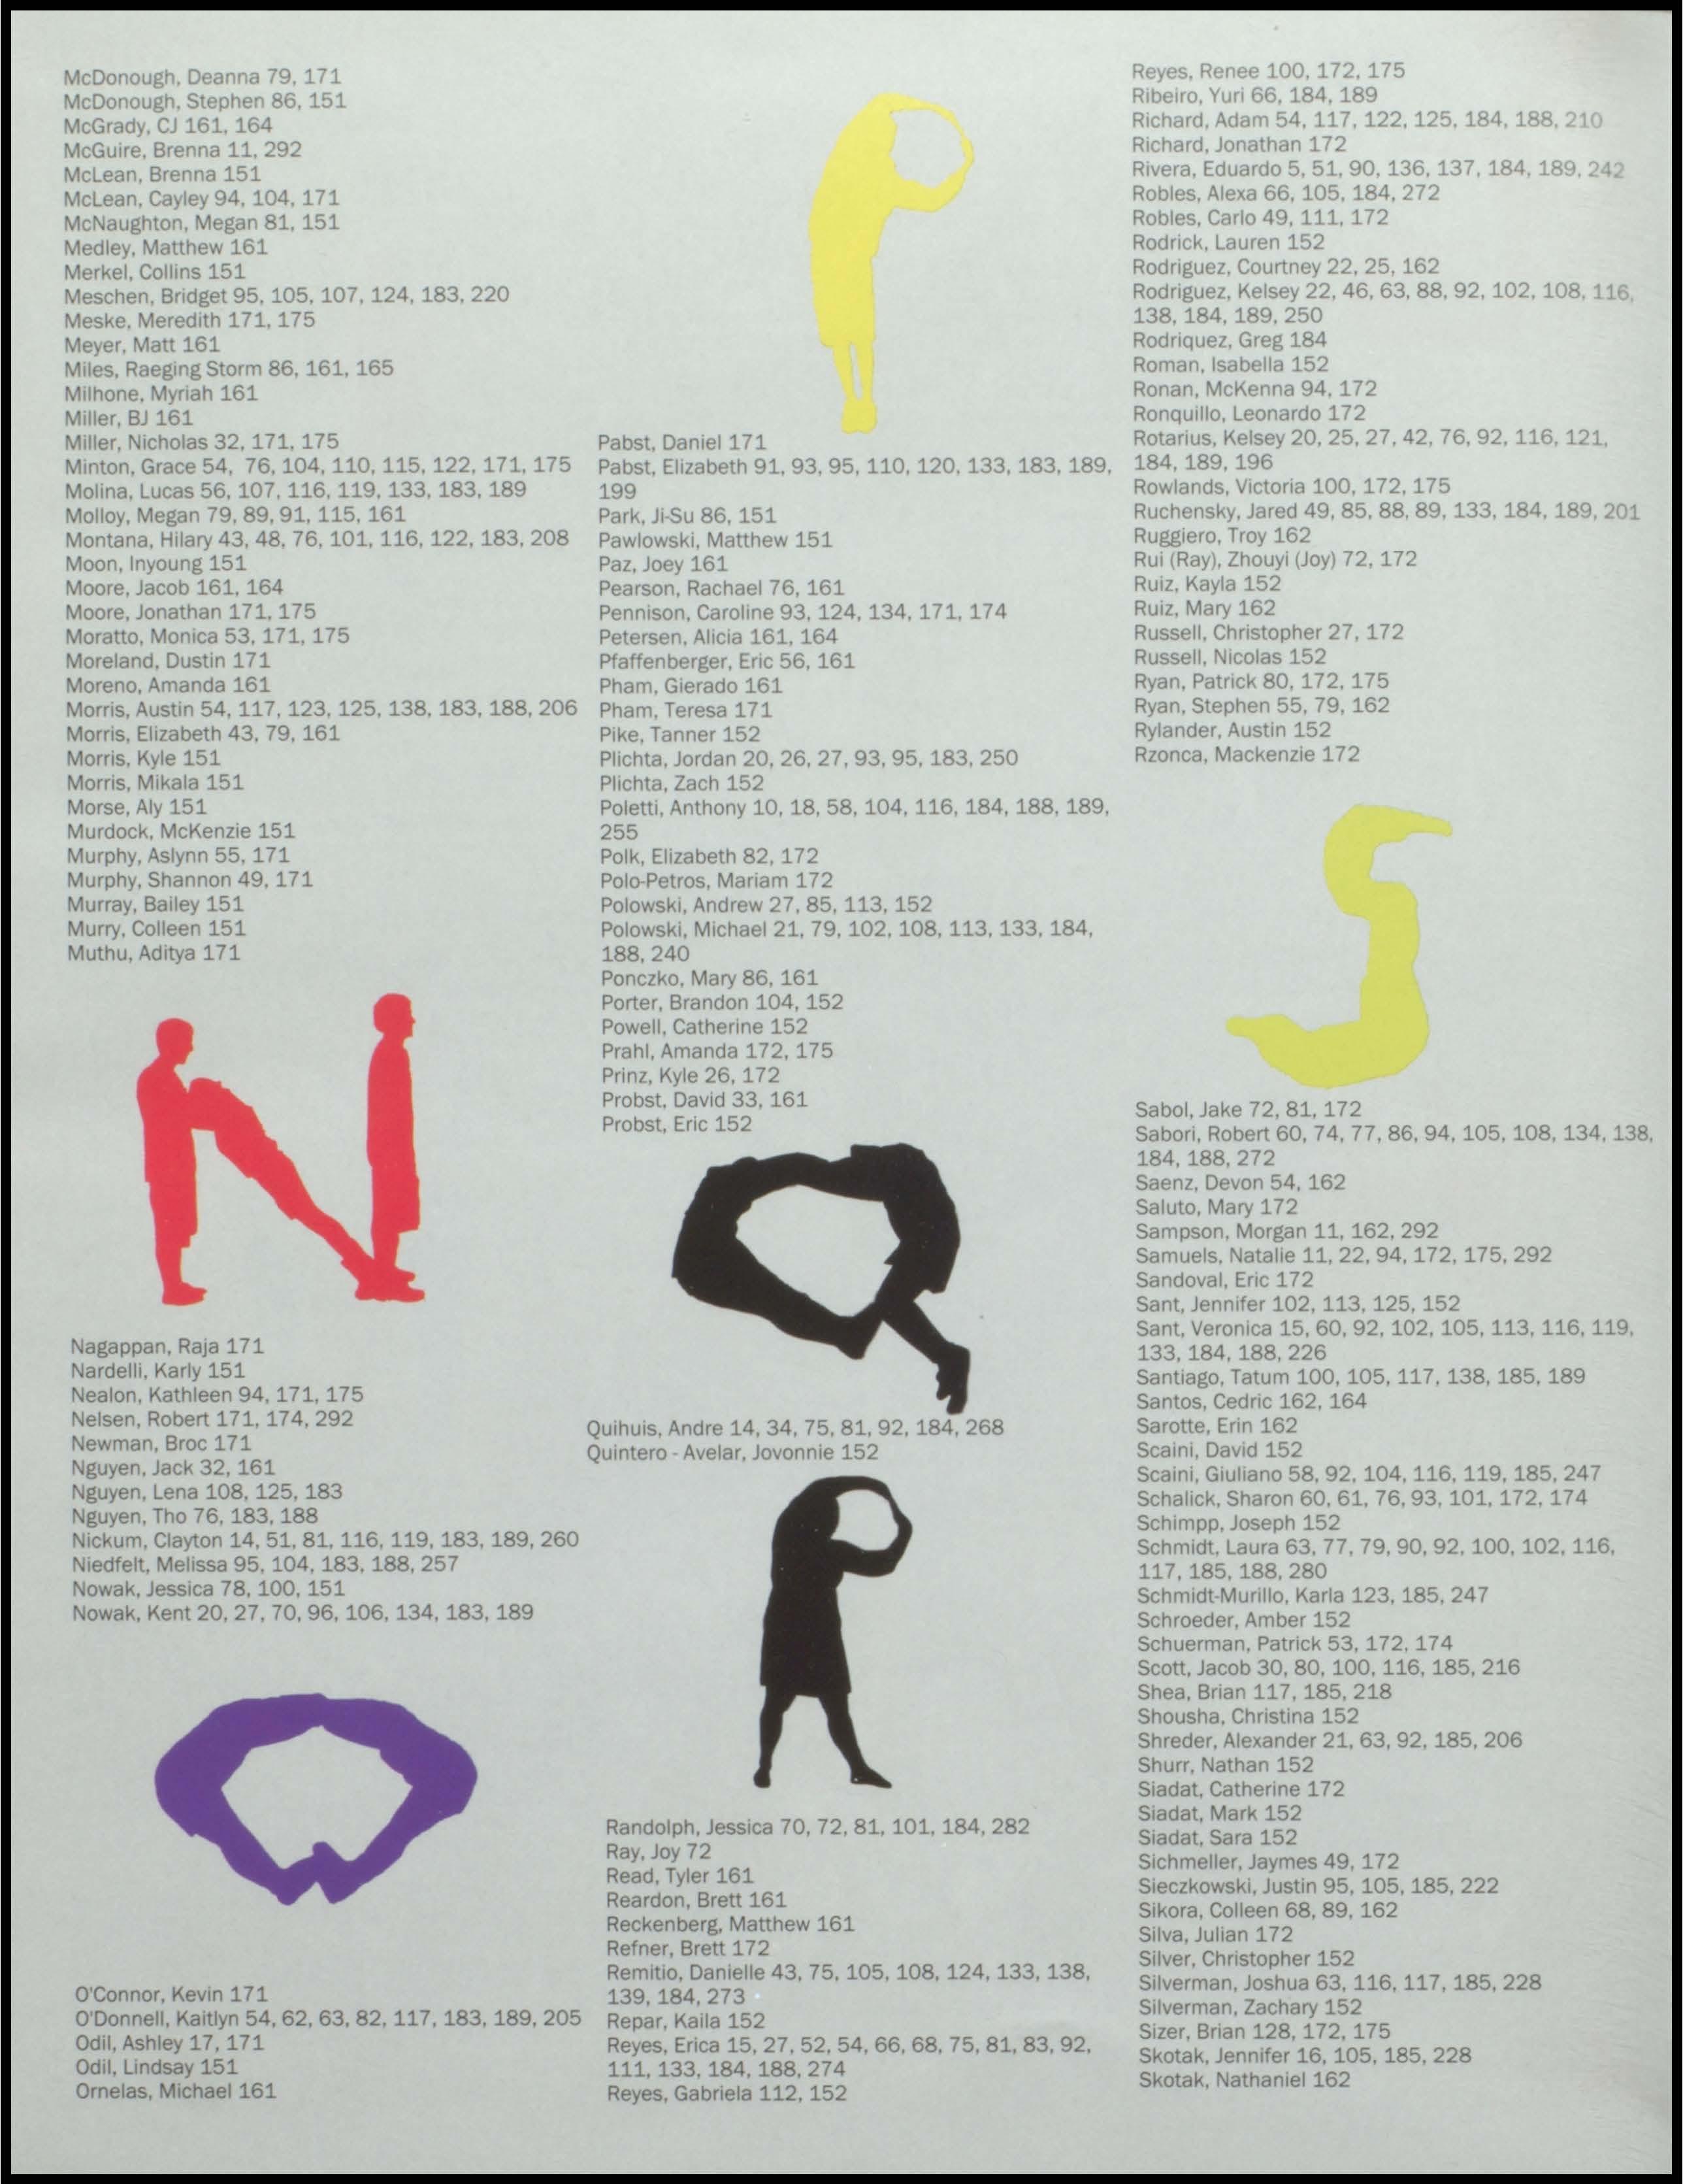 McDonough, Deanna 79, 171
McDonough, Stephen 86, 151
McGrady, CJ 161, 164
McGuire, Brenna 11, 292
McLean, Brenna 151
McLean, Cayley 94, 104, 171
McNaughton, Megan 81, 151
Medley, Matthew 161
Merkel, Collins 151
Meschen, Bridget 95, 105, 107, 124, 183, 220
Meske, Meredith 171, 175
Meyer, Matt 161
Miles, Raeging Storm 86, 161, 165
Milhone, Myriah 161
Miller, BJ 161
Miller, Nicholas 32, 171, 175
Minton, Grace 54, 76, 104, 110, 115, 122, 171, 175
Molina, Lucas 56, 107, 116, 119, 133, 183, 189
Molloy, Megan 79, 89, 91, 115, 161
Montana, Hilary 43, 48, 76, 101, 116, 122, 183, 208
Moon, Inyoung 151
Moore, Jacob 161, 164
Moore, Jonathan 171, 175
Moratto, Monica 53, 171, 175
Moreland, Dustin 171
Moreno, Amanda 161
Morris, Austin 54, 117, 123, 125, 138, 183, 188, 206
Morris, Elizabeth 43, 79, 161
Morris, Kyle 151
Morris, Mikala 151
Morse, Aly 151
Murdock, McKenzie 151
Murphy, Aslynn 55, 171
Murphy, Shannon 49, 171
Murray, Bailey 151
Murry, Colleen 151
Muthu, Aditya 171
N
Nagappan, Raja 171
Nardelli, Karly 151
Nealon, Kathleen 94, 171, 175
Nelsen, Robert 171, 174, 292
Newman, Broc 171
Nguyen, Jack 32, 161
Nguyen, Lena 108, 125, 183
Nguyen, Tho 76, 183, 188
Nickum, Clayton 14, 51, 81, 116, 119, 183, 189, 260
Niedfelt, Melissa 95, 104, 183, 188, 257
Nowak, Jessica 78, 100, 151
Nowak, Kent 20, 27, 70, 96, 106, 134, 183, 189
O
O'Connor, Kevin 171
O'Donnell, Kaitlyn 54, 62, 63, 82, 117, 183, 189, 205
Odil, Ashley 17, 171
Odil, Lindsay 151
Ornelas, Michael 161
P
Pabst, Daniel 171
Pabst, Elizabeth 91, 93, 95, 110, 120, 133, 183, 189,
199
Park, Ji-Su 86, 151
Pawlowski, Matthew 151
Paz, Joey 161
Pearson, Rachael 76, 161
Pennison, Caroline 93, 124, 134, 171, 174
Petersen, Alicia 161, 164
Pfaffenberger, Eric 56, 161
Pham, Gierado 161
Pham, Teresa 171
Pike, Tanner 152
Plichta, Jordan 20, 26, 27, 93, 95, 183, 250
Plichta, Zach 152
Poletti, Anthony 10, 18, 58, 104, 116, 184, 188, 189,
255
Polk, Elizabeth 82, 172
Polo-Petros, Mariam 172
Polowski, Andrew 27, 85, 113, 152
Polowski, Michael 21, 79, 102, 108, 113, 133, 184,
188, 240
Ponczko, Mary 86, 161
Porter, Brandon 104, 152
Powell, Catherine 152
Prahl, Amanda 172, 175
Prinz, Kyle 26, 172
Probst, David 33, 161
Probst, Eric 152
Q
Quihuis, Andre 14, 34, 75, 81, 92, 184, 268
Quintero - Avelar, Jovonnie 152
R
Randolph, Jessica 70, 72, 81, 101, 184, 282
Ray, Joy 72
Read, Tyler 161
Reardon, Brett 161
Reckenberg, Matthew 161
Refner, Brett 172
Remitio, Danielle 43, 75, 105, 108, 124, 133, 138,
139, 184, 273
Repar, Kaila 152
Reyes, Erica 15, 27, 52, 54, 66, 68, 75, 81, 83, 92,
111, 133, 184, 188, 274
Reyes, Gabriela 112, 152
Reyes, Renee 100, 172, 175
Ribeiro, Yuri 66, 184, 189
Richard, Adam 54, 117, 122, 125, 184, 188, 210
Richard, Jonathan 172
Rivera, Eduardo 5, 51, 90, 136, 137, 184, 189, 242
Robles, Alexa 66, 105, 184, 272
Robles, Carlo 49, 111, 172
Rodrick, Lauren 152
Rodriguez, Courtney 22, 25, 162
Rodriguez, Kelsey 22, 46, 63, 88, 92, 102, 108, 116,
138, 184, 189, 250
Rodriquez, Greg 184
Roman, Isabella 152
Ronan, McKenna 94, 172
Ronquillo, Leonardo 172
Rotarius, Kelsey 20, 25, 27, 42, 76, 92, 116, 121,
184, 189, 196
Rowlands, Victoria 100, 172, 175
Ruchensky, Jared 49, 85, 88, 89, 133, 184, 189, 201
Ruggiero, Troy 162
Rui (Ray), Zhouyi (Joy) 72, 172
Ruiz, Kayla 152
Ruiz, Mary 162
Russell, Christopher 27, 172
Russell, Nicolas 152
Ryan, Patrick 80, 172, 175
Ryan, Stephen 55, 79, 162
Rylander, Austin 152
Rzonca, Mackenzie 172
S
Sabol, Jake 72, 81, 172
Sabori, Robert 60, 74, 77, 86, 94, 105, 108, 134, 138,
184, 188, 272
Saenz, Devon 54, 162
Saluto, Mary 172
Sampson, Morgan 11, 162, 292
Samuels, Natalie 11, 22, 94, 172, 175, 292
Sandoval, Eric 172
Sant, Jennifer 102, 113, 125, 152
Sant, Veronica 15, 60, 92, 102, 105, 113, 116, 119,
133, 184, 188, 226
Santiago, Tatum 100, 105, 117, 138, 185, 189
Santos, Cedric 162, 164
Sarotte, Erin 162
Scaini, David 152
Scaini, Giuliano 58, 92, 104, 116, 119, 185, 247
Schalick, Sharon 60, 61, 76, 93, 101, 172, 174
Schimpp, Joseph 152
Schmidt, Laura 63, 77, 79, 90, 92, 100, 102, 116,
117, 185, 188, 280
Schmidt-Murillo, Karla 123, 185, 247
Schroeder, Amber 152
Schuerman, Patrick 53, 172, 174
Scott, Jacob 30, 80, 100, 116, 185, 216
Shea, Brian 117, 185, 218
Shousha, Christina 152
Shreder, Alexander 21, 63, 92, 185, 206
Shurr, Nathan 152
Siadat, Catherine 172
Siadat, Mark 152
Siadat, Sara 152
Sichmeller, Jaymes 49, 172
Sieczkowski, Justin 95, 105, 185, 222
Sikora, Colleen 68, 89, 162
Silva, Julian 172
Silver, Christopher 152
Silverman, Joshua 63, 116, 117, 185, 228
Silverman, Zachary 152
Sizer, Brian 128, 172, 175
Skotak, Jennifer 16, 105, 185, 228
Skotak, Nathaniel 162